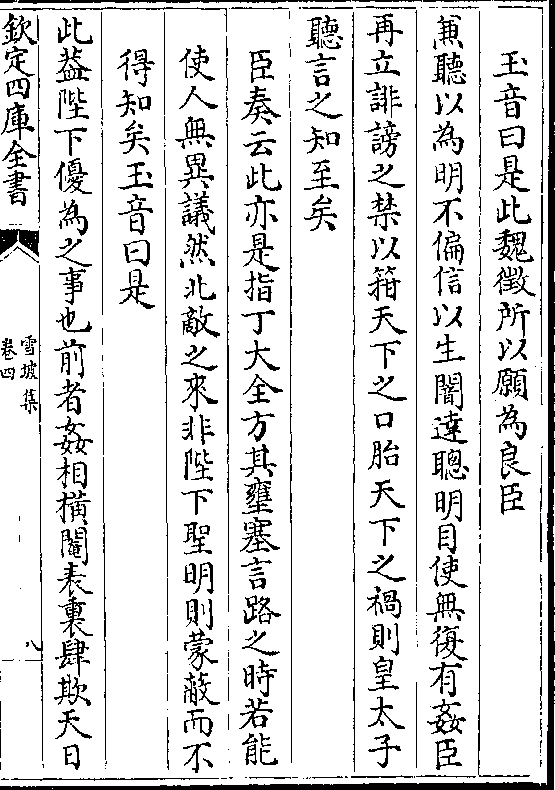 玉音曰是此魏徵所以願為良臣
兼聽以為明不偏信以生闇達聰明目使無復有姦臣
再立誹謗之禁以箝天下之口胎天下之禍則皇太子
聽言之知至矣
臣奏云此亦是指丁大全方其壅塞言路之時若能
使人無異議然北敵之來非陛下聖明則蒙蔽而不
得知矣玉音曰是
此葢陛下優為之事也前者姦相橫閹表裏肆欺天日
欽定四庫全書
雪坡集
卷四
八